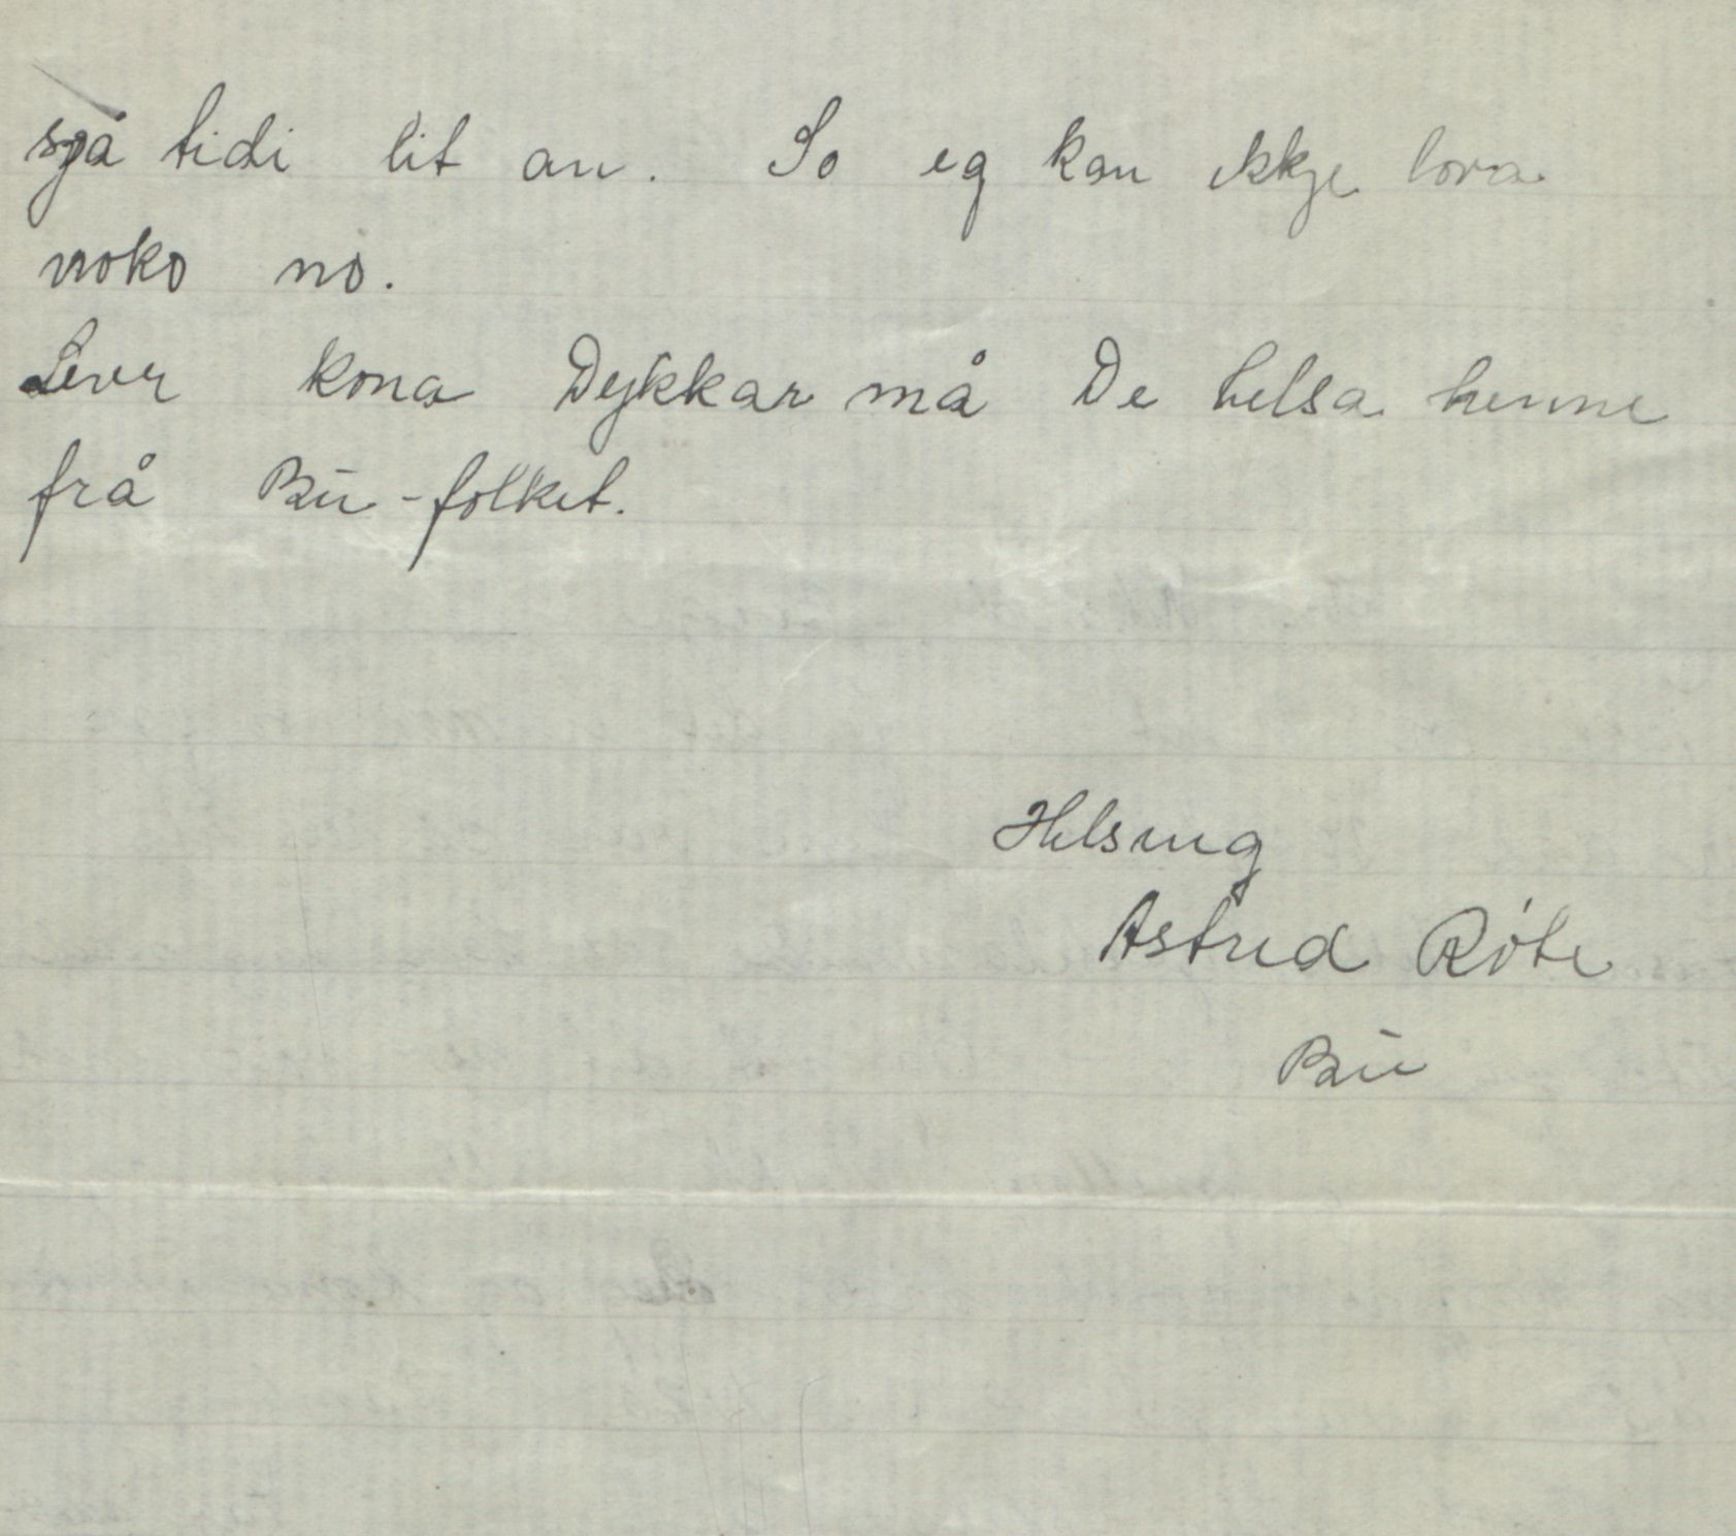 sjå tidi lit an. So eg kan ikkje lova
noko no.
Lever kona Dykkar må De helsa henne
frå Bu-folket.
Helsing
Astrid Röte
Bu